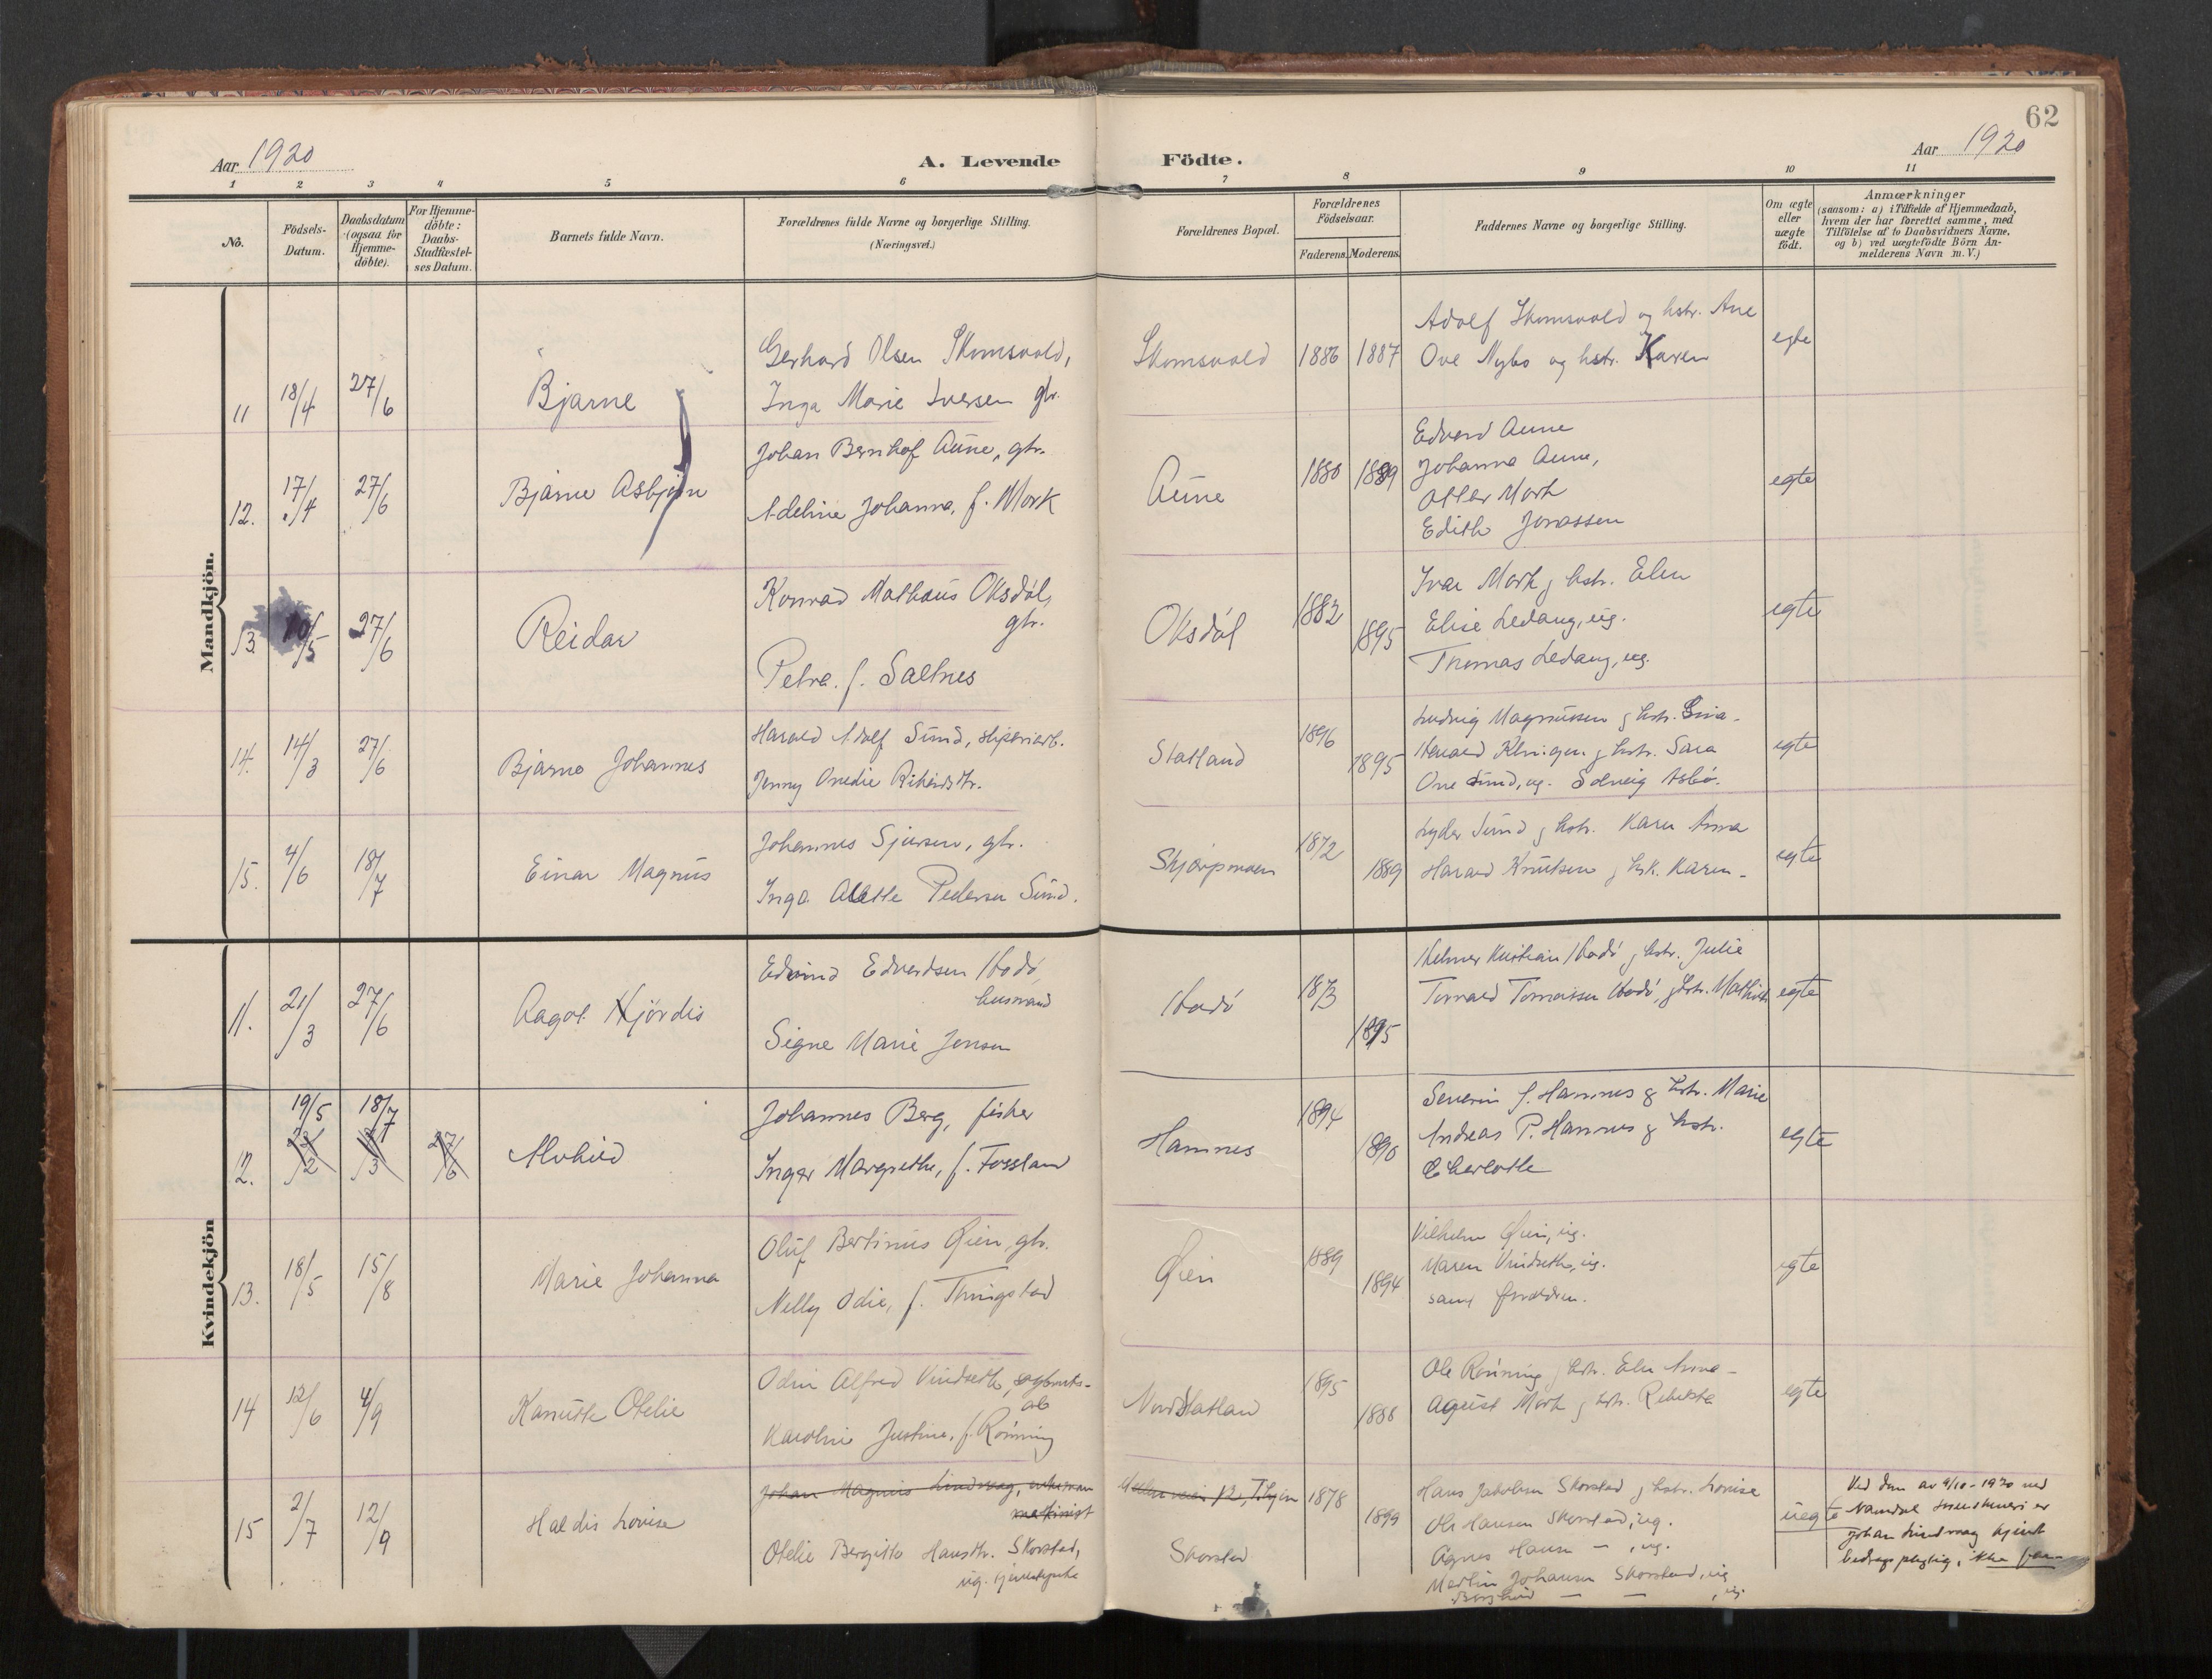 62
Aar 1920
A. Levende Födte.
Aar 1920
1 2 3 4 5 6 7 8 9 10 11
No.
Födsels-Datum.
Daabsdatum (ogsaa for Hjemme-döbte).
For Hjemme-döbte: Daabs-Stadfæstel-ses Datum.
Barnets fulde Navn.
Forældrenes fulde Navne og borgerlige Stilling.
(Næringsvei.)
Forældrenes Bopæl.
Forældrenes Födselsaar.
Faderens. Moderens.
Faddernes Navne og borgerlige Stilling.
Om ægte eller uægte födt.
Anmærkninger
(saasom: a) i Tilfælde af Hjemmedaab,
hvem der har forrettet samme, med
Tilföielse af to Daabsvidners Navne,
og b) ved uægtefödte Börn An-
melderens Navn m. V.)
Mandkjön.
11 18/4 27/6 Bjarne
Gerhard Olsen Skomsvold,
Inga Marie Iversen gbr.
Skomsvold 1886 1887
Adolf Skomsvold og hstr. Ane
Ove Nybo og hstr. Karen
egte
12. 17/4 27/6 Bjarne Asbjørn
Johan Bernhof Aune, gbr.
Adeline Johanna, f. Mork
Aune 1880 1889
Edvard Aune
Johanna Aune,
Ottar Mork
Edith Jonassen
egte
13. 10/5 27/6 Reidar
Konrad Mathæus Oksdøl,
gbr.
Petra f. Saltnes
Oksdøl 1882 1895
Ivar Mork, hstr. Elen
Elise Ledang, ug.
Thomas Ledang, ug.
egte
14. 14/3 27/6 Bjarne Johannes
Harald Adolf Sund,
Jenny Onedie
Statland 1896 1895
Ludvig Magnussen, hstr.
Harald Klingen, hstr. Sara
Ove Sund, ug. Solveig Asbø.
egte
15. 4/6 18/7 Einar Magnus
Johannes Sjursen, gbr.
Inga Alette Pedersen Sund.
Skjærpmoen 1872 1889
Lyder Sund, hstr. Karen Anna
Harald Knutsen, hstr. Karen
egte
Kvindekjön
11. 21/3 27/6 Aagot Hjördis
Edvind Edvardsen Hodø,
husmand
Signe Marie Jensen
Hodø 1873 1895
Helmer Kristian Hodø, hstr. Julie
Tomassen Hodø, hstr.
egte
12. 19/5 18/7 Alvhild
22/2 /3 27/6
Johannes Berg, fisker
Inger Margrethe, f. Fossland
Hamnes 1894 1890
Severin J. Hamnes & hstr. Marie
Andreas P. Hamnes & hstr.
Charlotte
egte
13. 18/5 15/8 Marie Johanna
Oluf Bertinus Øien, gbr.
Nelly Odie, f. Thingstad
Øien 1889 1894
Vilhelm Øien, ug.
Maren Vindseth, ug.
samt forældren.
egte
14 12/6 4/9 Kanutte Otelie
Odin Alfred Vindseth, sagbruks-
arb
Karoline Justine, f. Rønning
Nordstatland 1895 1888
Ole Rønning, hstr. Elen Anna
August Mork, hstr. Rebekka
egte
15 2/7 12/9 Haldis Lovise
Johan Magnus Lindvaag,
maskinist
Otelie Bergitte Hansdtr. Skorstad,
ug. tjenestepike
1878 1899
Skorstad
Hans Jakobsen Skorstad, hstr. Lovise
Ole Hansen Skorstad, ug.
Agnes Hansen — , ug.
Martin Johansen Skorstad, ug
— — , ug.
uegte
Ved dom av 9/10 - 1920 ved
Namdal er
Johan Lindvaag kjent
bidragspligtig, ikke far